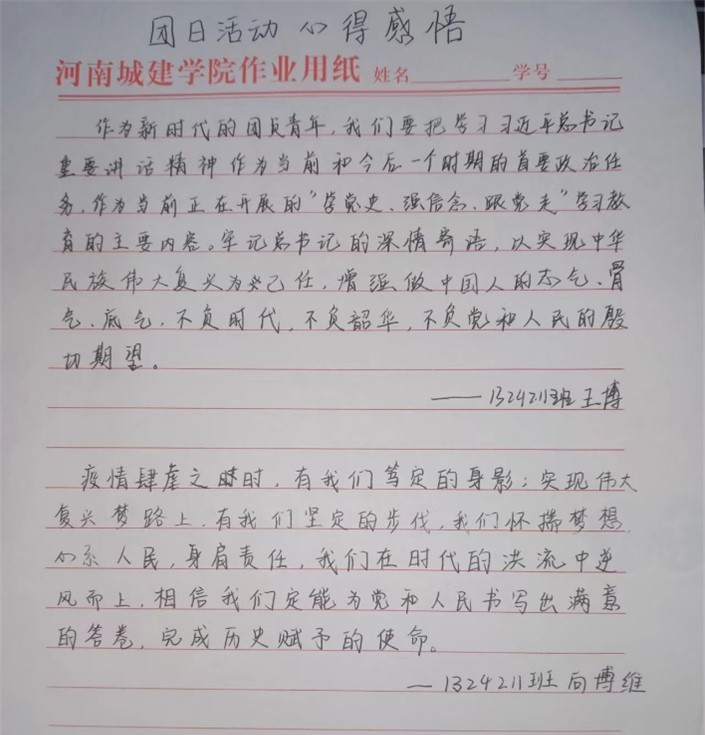 团日活动心得感悟
河南城建学院作业用纸 姓名 学号
作为新时代的团员青年,我们要把学习习近平总书记
重要讲话精神作为当前和今后一个时期的首要政治任
务,作为当前正在开展的“学党史、强信念、跟党走”学习教
育的主要内容。牢记总书记的深情寄语,以实现中华
民族伟大复兴为己任,增强做中国人的志气、骨
气、底气,不负时代,不负韶华,不负党和人民的殷
切期望。
——1324211班王博
疫情肆虐之时,有我们笃定的身影;实现伟大
复兴梦路上,有我们坚定的步伐,我们怀揣梦想,
心系人民,身肩责任,我们在时代的洪流中逆
风而上,相信我们定能为党和人民书写出满意
的答卷,完成历史赋予的使命。
—1324211班向博维